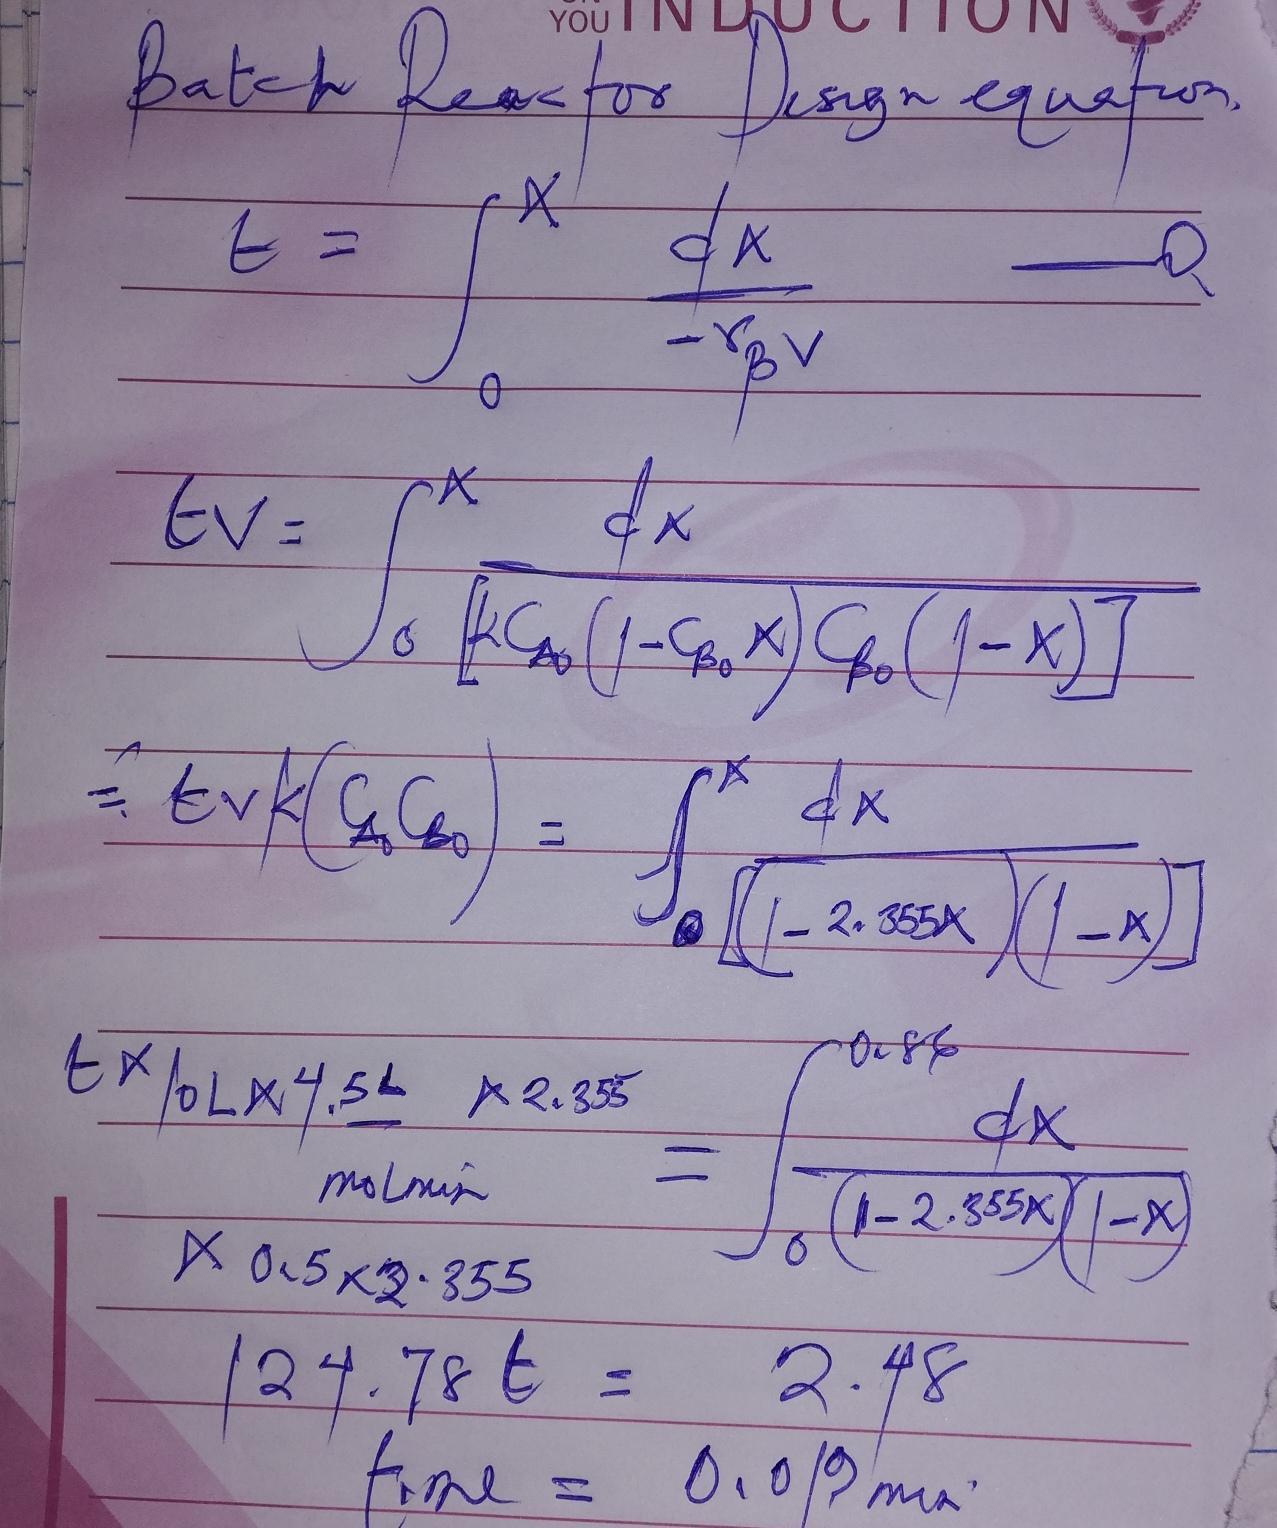 YOU INDUCTION
Batch Reactor Design equation.
t = ∫₀ˣ dx / -r_B V —
tV = ∫₀ˣ dx / [kC_A₀(1-C_B₀X)C_B₀(1-X)]
= tvk(C_A₀C_B₀) = ∫₀ˣ dx / [(1-2.355X)(1-X)]
t x 10L x 4.5L / mol min x 2.355 = ∫₀^0.86 dx / (1-2.355X)(1-X)
x 0.5 x 2.355
124.78 t = 2.48
time = 0.019 min.